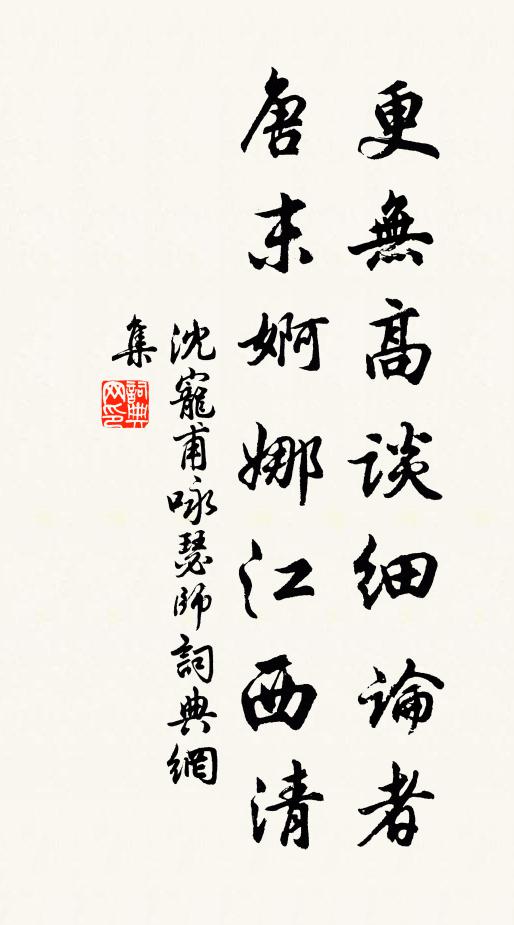 更無高談細論者
唐末婀娜江西清
沈寵甫咏瑟師詞典網
集
詞典
网印